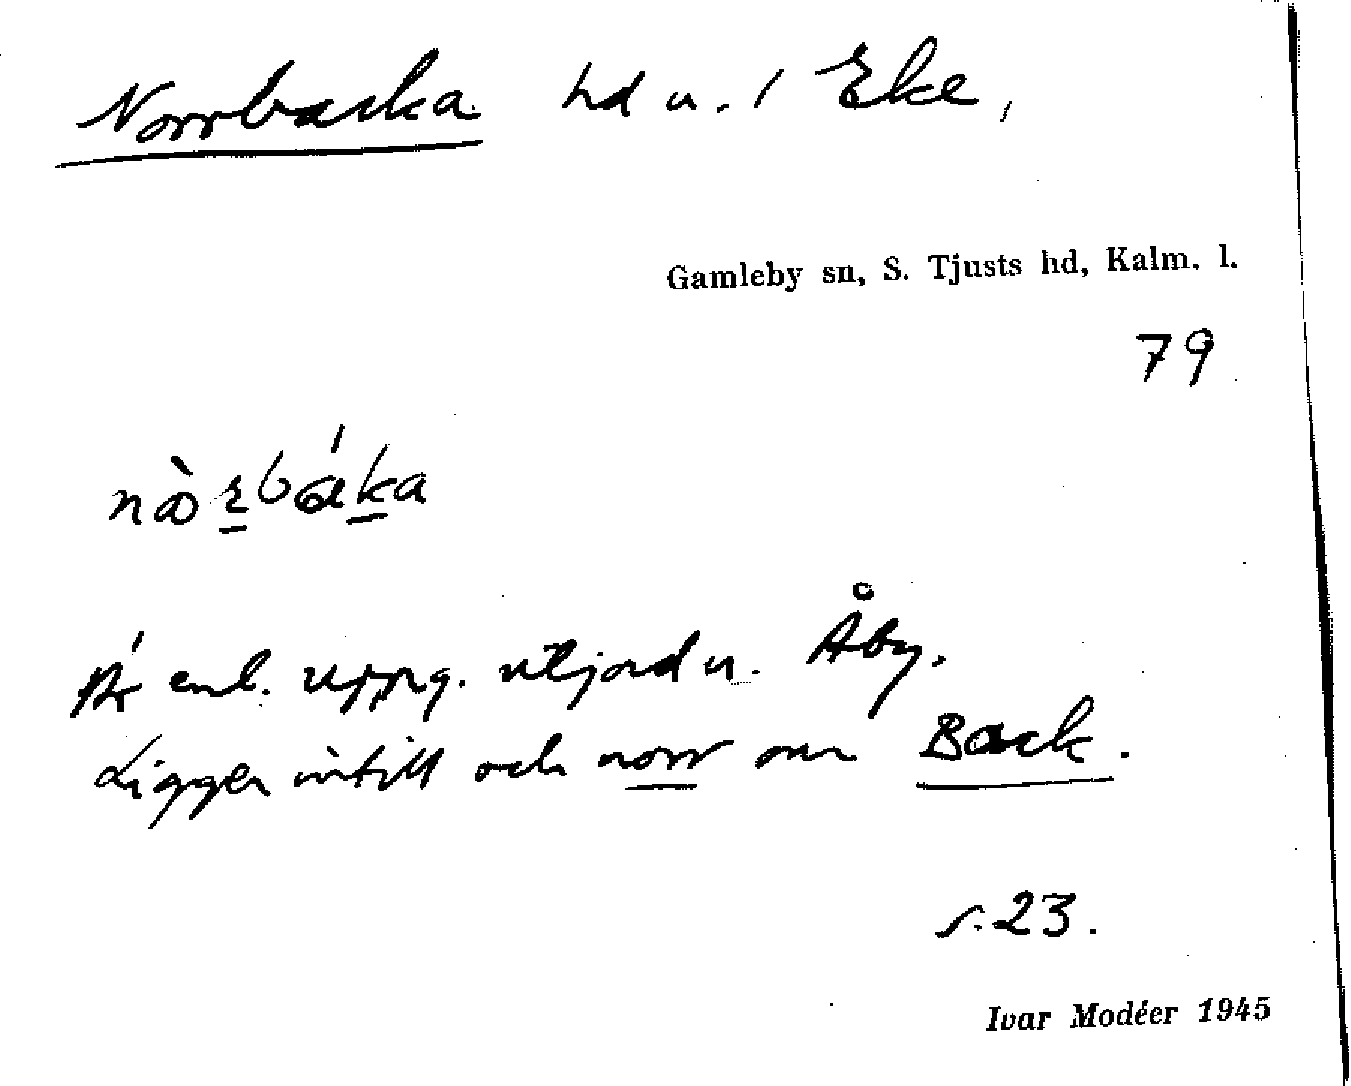 Norrbacka hd u. / Eke,
Gamleby sn, S. Tjusts hd, Kalm. l.
79
Är enl. uppg. utjord u. Åby.
Ligger intill och norr om Back.
s. 23.
Ivar Modéer 1945